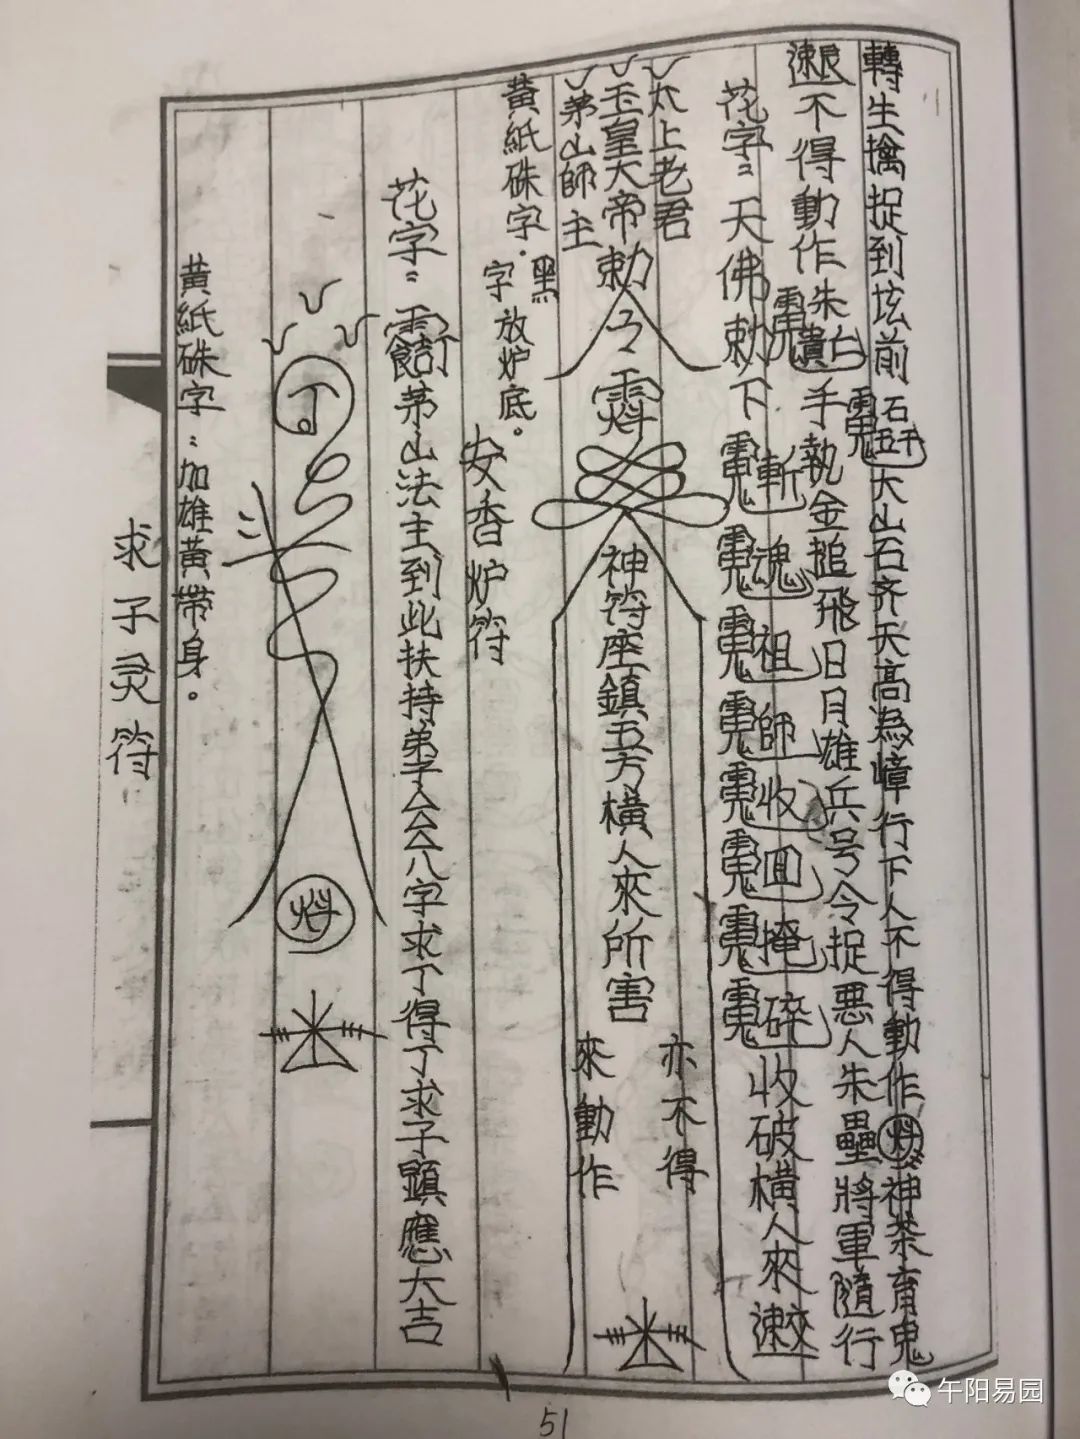 轉生擒捉到坛前
石
大山石齐天高為嶂行下人不得動作
神茶育鬼
不得動作朱
手執金搥飛日月雄兵号令捉惡人朱壘將軍隨行
花字：天佛勅下
斬魂祖師收囬掩碎收破橫人來
太上老君
玉皇大帝勅
茅山師主
神符座鎮五方橫人來所害
亦不得
來動作
黃紙硃字.黑字放炉底。
安香炉符
花字：
茅山法主到此扶持弟子厶厶厶八字求丁得丁求子顯應大吉
丁
黃紙硃字：加雄黃帶身。
求子灵符
51
午阳易园